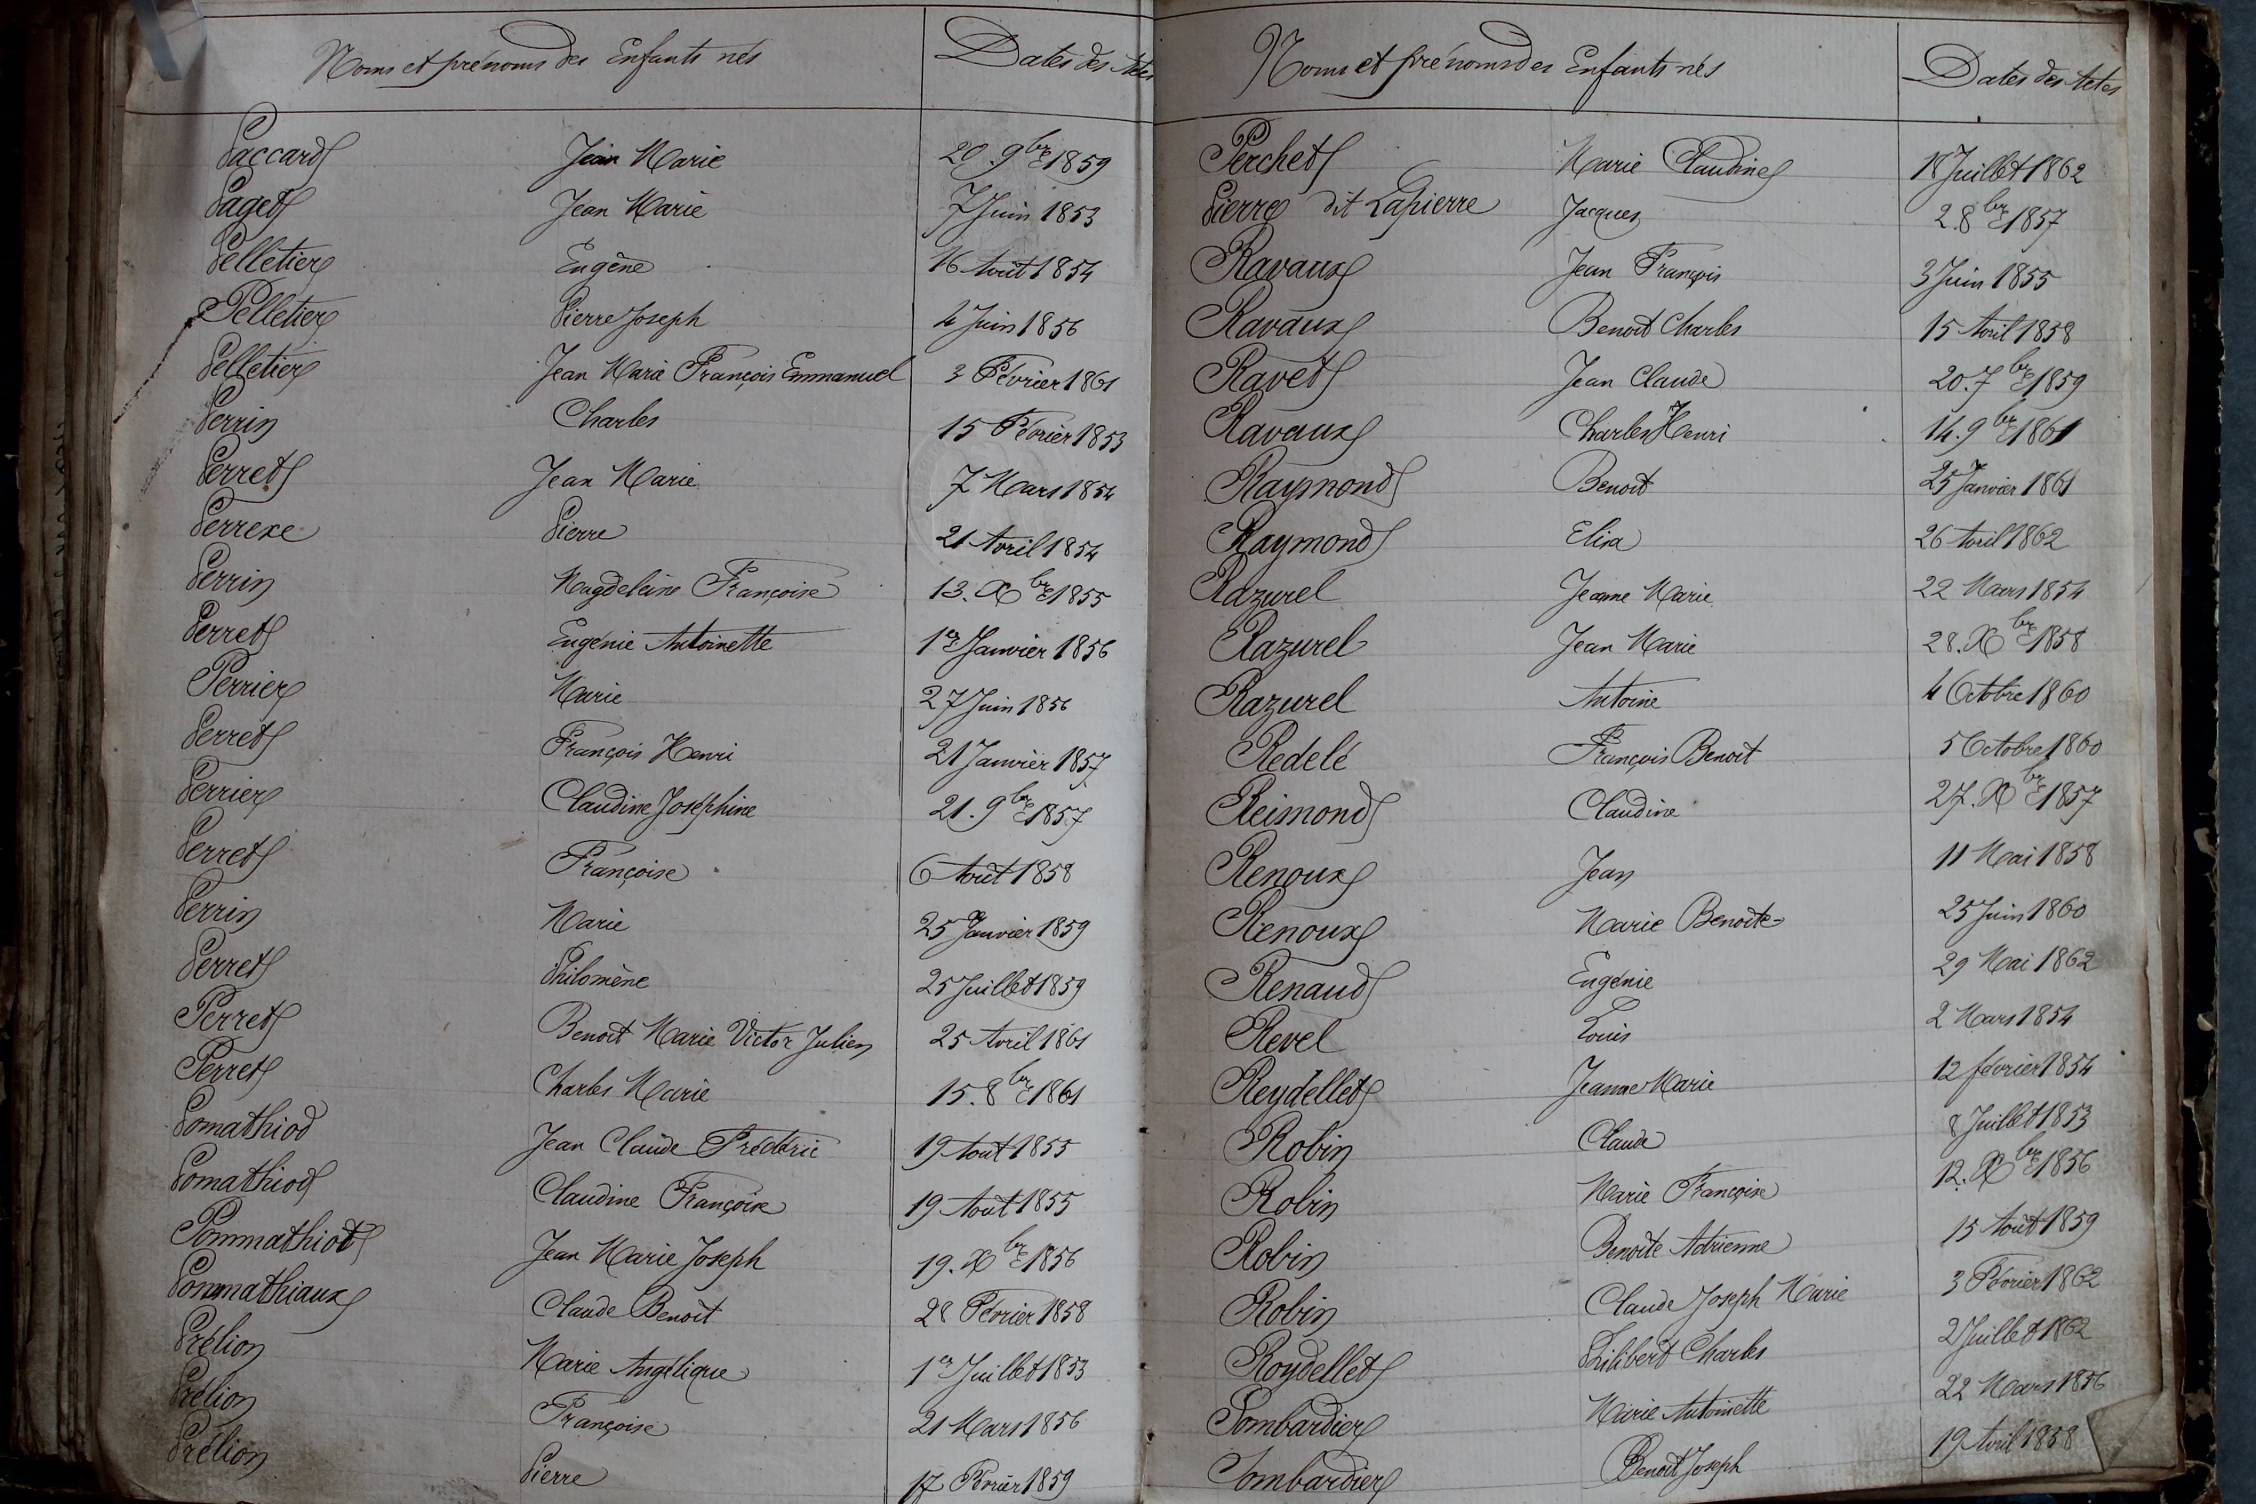 Noms et prénoms des Enfants nés Dates des Actes
Paccard Jean Marie 20. 9bre 1859
Paget Jean Marie 7 Juin 1853
Pelletier Eugène 16 Août 1854
Pelletier Pierre Joseph 4 Juin 1856
Pelletier Jean Marie François Emmanuel 3 Février 1861
Perrin Charles 15 Février 1853
Perret Jean Marie 7 Mars 1854
Perrexe Pierre 21 Avril 1854
Perrin Magdeleine Françoise 13. Xbre 1855
Perret Eugénie Antoinette 1er Janvier 1856
Perrier Marie 27 Juin 1856
Perret François Henri 21 Janvier 1857
Perrier Claudine Joséphine 21. 9bre 1857
Perret Françoise 6 Août 1858
Perrin Marie 25 Janvier 1859
Perret Philomène 25 Juillet 1859
Perret Benoit Marie Victor Julien 25 Avril 1861
Perret Charles Marie 15. 8bre 1861
Pomathiod Jean Claude Frédéric 19 Août 1855
Pomathiod Claudine Françoise 19 Août 1855
Pommathiot Jean Marie Joseph 19. Xbre 1856
Pommathiaux Claude Benoît 28 Février 1858
Prélion Marie Angélique 1er Juillet 1853
Prélion Françoise 21 Mars 1856
Prélion Pierre 17 Février 1859
Noms et prénoms des Enfants nés Dates des Actes
Perchet Marie Claudine 18 Juillet 1862
Pierre dit Lapierre Jacques 2. 8bre 1857
Ravaux Jean François 3 Juin 1855
Ravaux Benoit Charles 15 Avril 1858
Ravet Jean Claude 20. 7bre 1859
Ravaux Charles Henri 14. 9bre 1861
Raymond Benoit 25 Janvier 1861
Raymond Elisa 26 Avril 1862
Razurel Jeanne Marie 22 Mars 1854
Razurel Jean Marie 28. Xbre 1858
Razurel Antoine 4 Octobre 1860
Redelé François Benoit 5 Octobre 1860
Reimond Claudine 27. Xbre 1857
Renoux Jean 11 Mai 1858
Renoux Marie Benoite 25 Juin 1860
Renaud Eugénie 29 Mai 1862
Revel Louis 2 Mars 1854
Reydellet Jeanne Marie 12 février 1854
Robin Claude 8 Juillet 1853
Robin Marie Françoise 12. Xbre 1856
Robin Benoite Adrienne 15 Août 1859
Robin Claude Joseph Marie 3 Février 1862
Roydellet Philibert Charles 2 Juillet 1862
Pombardier Marie Antoinette 22 Mars 1856
Pombardier Benoit Joseph 19 Avril 1858